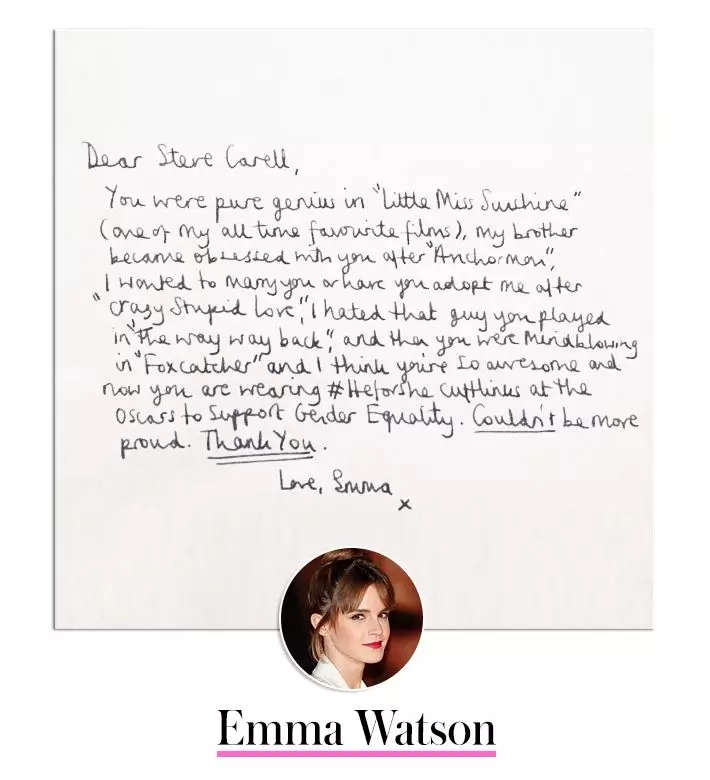 Dear Steve Carell,
You were pure genius in "Little Miss Sunshine"
(one of my all time favourite films), my brother
became obsessed with you after "Anchorman",
I wanted to marry you or have you adopt me after
"Crazy Stupid Love", I hated that guy you played
in "The way way back", and then you were Mindblowing
in "Foxcatcher" and I think you're so awesome and
now you are wearing #Heforshe cufflinks at the
Oscars to support Gender Equality. Couldn't be more
proud. Thank You.
Love, Emma
x
Emma Watson